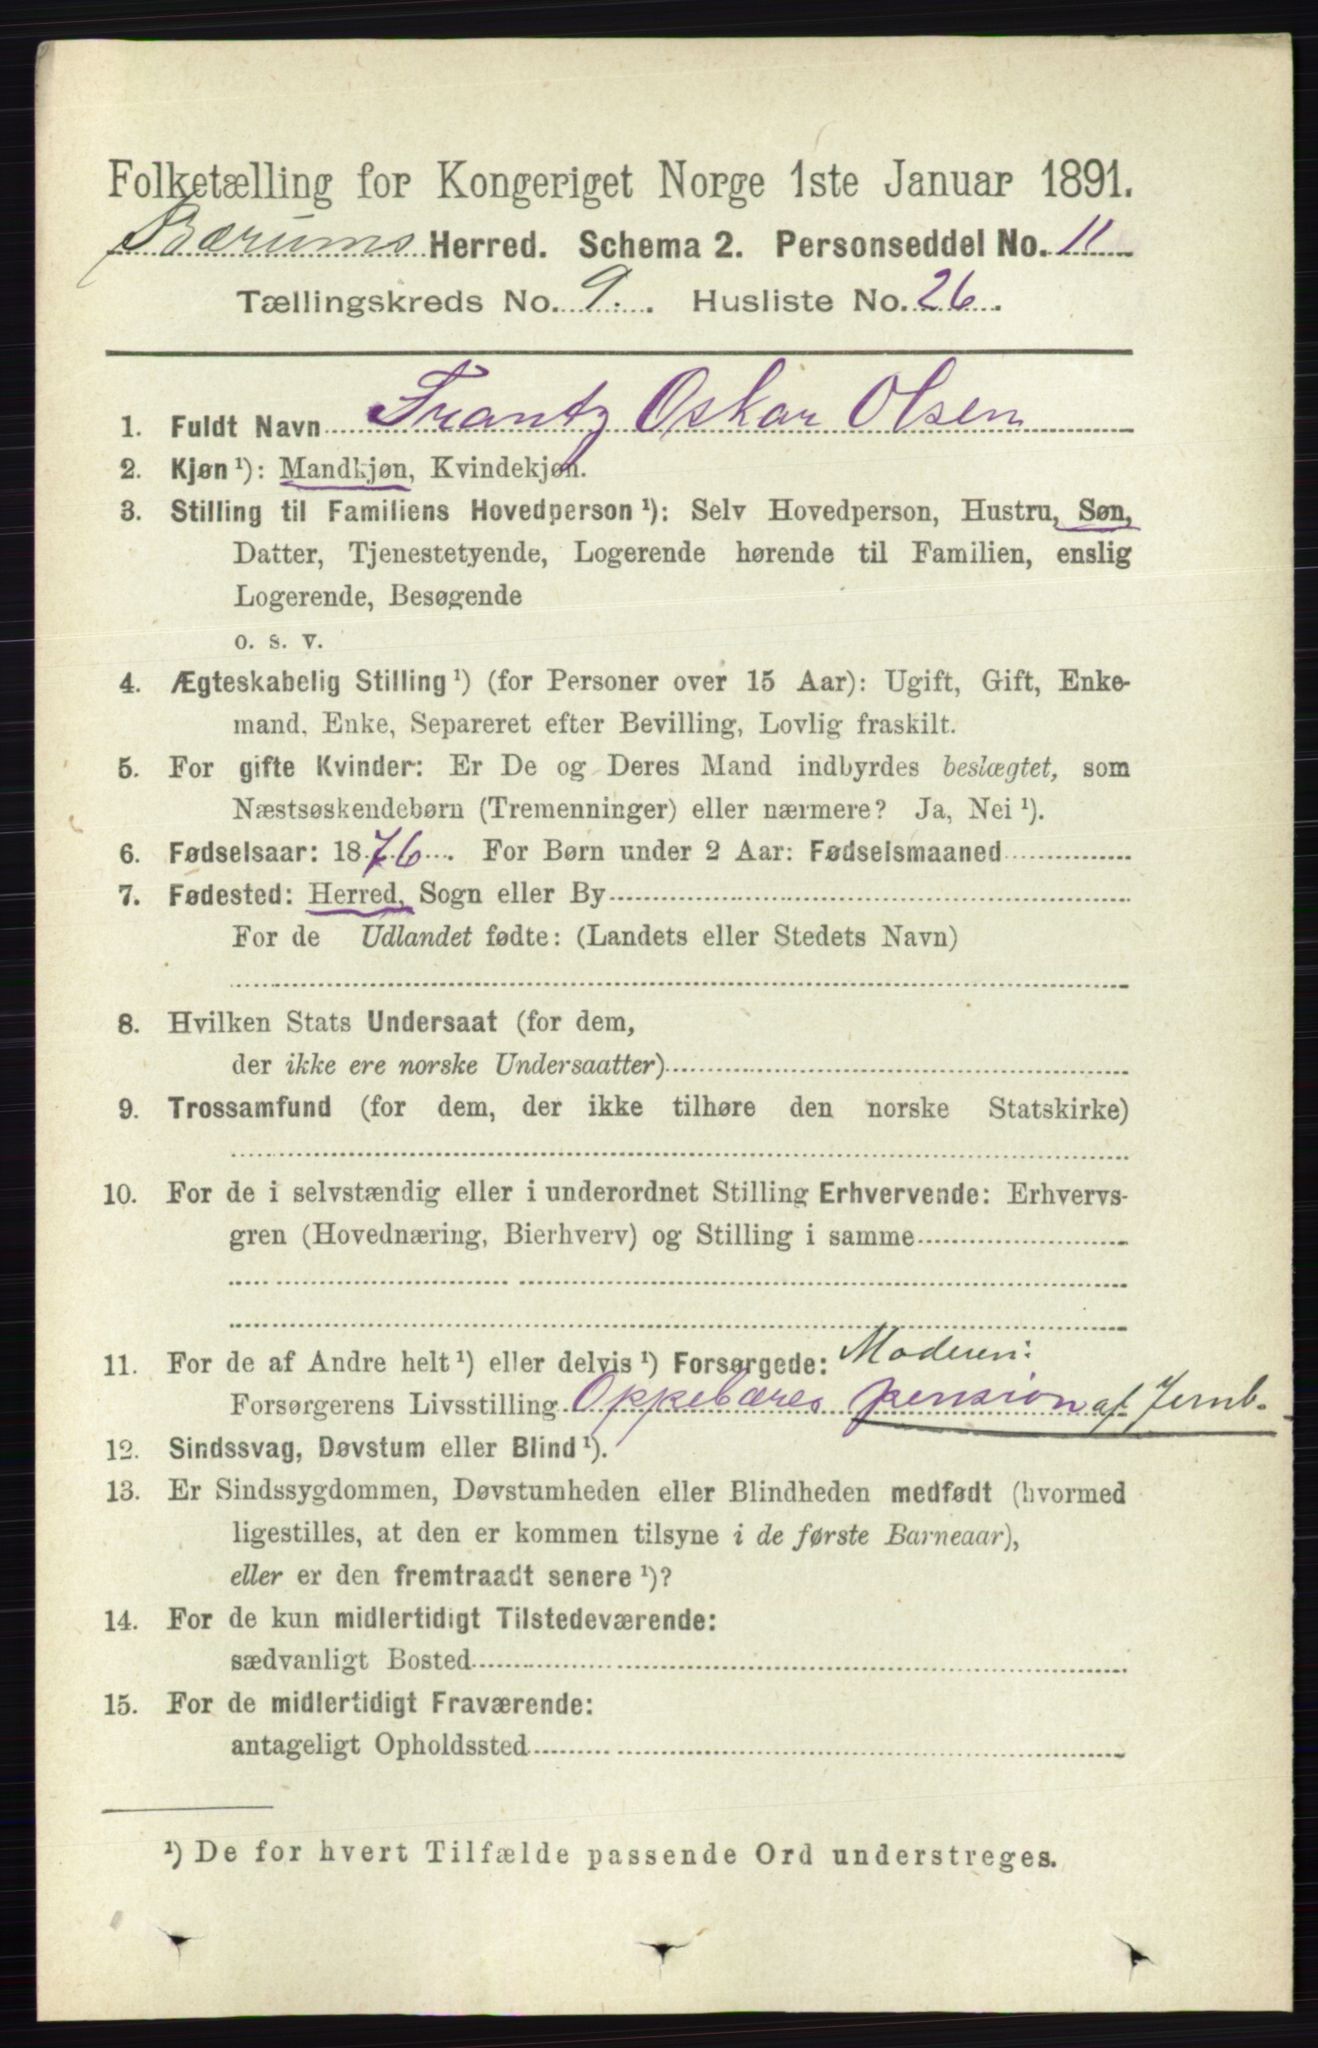 Folketælling for Kongeriget Norge 1ste Januar 1891.
Bærums Herred. Schema 2. Personseddel No. 11
Tællingskreds No. 9. Husliste No. 26.
1. Fuldt Navn Frantz Oskar Olsen
2. Kjøn ¹): Mandkjøn, Kvindekjøn.
3. Stilling til Familiens Hovedperson ¹): Selv Hovedperson, Hustru, Søn,
Datter, Tjenestetyende, Logerende hørende til Familien, enslig
Logerende, Besøgende
o. s. v.
4. Ægteskabelig Stilling ¹) (for Personer over 15 Aar): Ugift, Gift, Enke-
mand, Enke, Separeret efter Bevilling, Lovlig fraskilt.
5. For gifte Kvinder: Er De og Deres Mand indbyrdes beslægtet, som
Næstsøskendebørn (Tremenninger) eller nærmere? Ja, Nei ¹).
6. Fødselsaar: 1876. For Børn under 2 Aar: Fødselsmaaned
7. Fødested: Herred, Sogn eller By
For de Udlandet fødte: (Landets eller Stedets Navn)
8. Hvilken Stats Undersaat (for dem,
der ikke ere norske Undersaatter)
9. Trossamfund (for dem, der ikke tilhøre den norske Statskirke)
10. For de i selvstændig eller i underordnet Stilling Erhvervende: Erhvervs-
gren (Hovednæring, Bierhverv) og Stilling i samme
11. For de af Andre helt ¹) eller delvis ¹) Forsørgede: Moderen:
Forsørgerens Livsstilling Oppebæres pension af Jernb.
12. Sindssvag, Døvstum eller Blind ¹).
13. Er Sindssygdommen, Døvstumheden eller Blindheden medfødt (hvormed
ligestilles, at den er kommen tilsyne i de første Barneaar),
eller er den fremtraadt senere ¹)?
14. For de kun midlertidigt Tilstedeværende:
sædvanligt Bosted
15. For de midlertidigt Fraværende:
antageligt Opholdssted
¹) De for hvert Tilfælde passende Ord understreges.